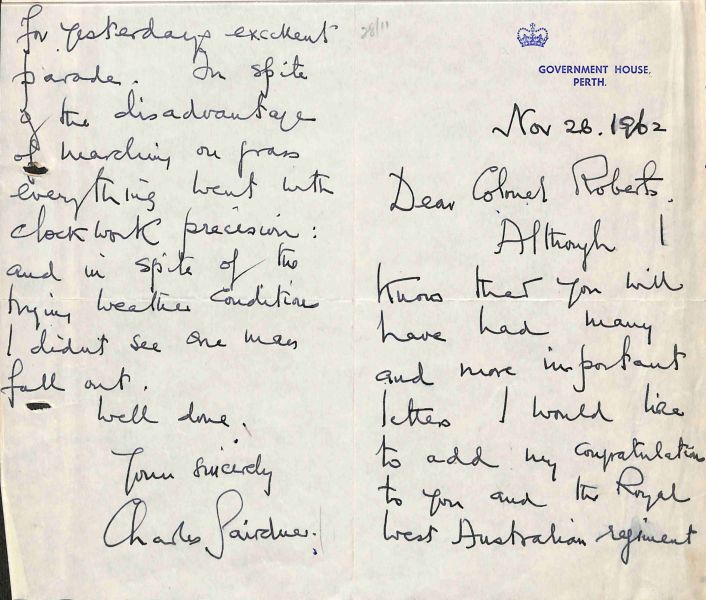 GOVERNMENT HOUSE,
PERTH.
Nov 28. 1962
Dear Colonel Roberts.
Although I
know that you will
have had many
and more important
letters I would like
to add my congratulations
to you and the Royal
West Australian regiment
for yesterdays excellent
parade. In spite
of the disadvantage
of marching on grass
everything went with
clockwork precision:
and in spite of the
trying weather conditions
I didn't see one man
fall out.
Well done.
Yours sincerely
Charles Gairdner.
28/11